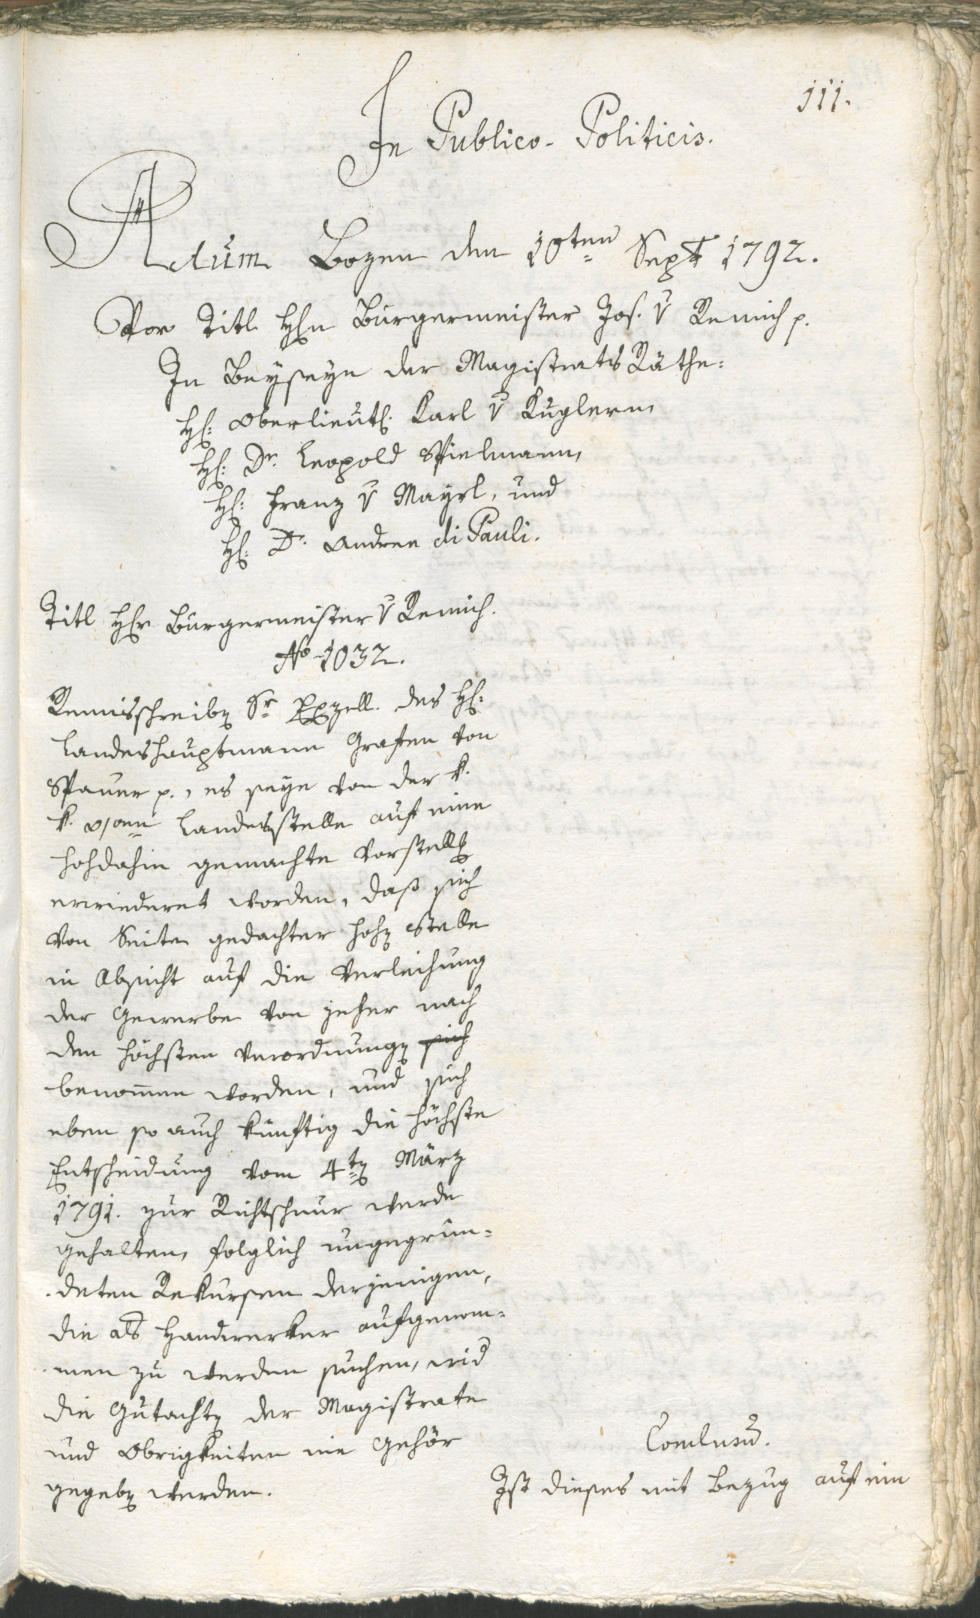 111.
In Publico-Politicis.
Actum Bozen den 10ten Sept 1792.
Vor Titl Hhn Bürgermeister Jos. v Remich p.
In Beyseyn der Magistrats Räthe:
H: Oberlieut: Karl v Kuglern,
H: Dr. Leopold Spielmann,
H: Franz v Mayrl, und
H: Dr. Andree di Pauli.
Titl Hhr Bürgermeister v Remich.
No 1032.
Remisschreibn Sr Exzell. des H:
Landeshauptmann Grafen von
Spauer p., es seye von der k.
k. oöen Landesstelle auf eine
hohdahin gemachte Vorstellg
erwiederet worden, daß sich
von Seite gedachter hohn Stelle
in Absicht auf die Verleihung
der Gewerbe von jeher nach
den höchsten Verordnungn sich
benommen worden, und sich
eben so auch künftig die höchste
Entscheidung vom 4tn März
1791. zur Richtschnur werde
gehalten, folglich ungegrün-
deten Rekursen derjenigen,
die als Handwerker aufgenom-
men zu werden suchen, wid
die Gutachtn der Magistrate
und Obrigkeiten nie Gehör
gegebn werden.
Conclusum.
Ist dieses mit Bezug auf ein